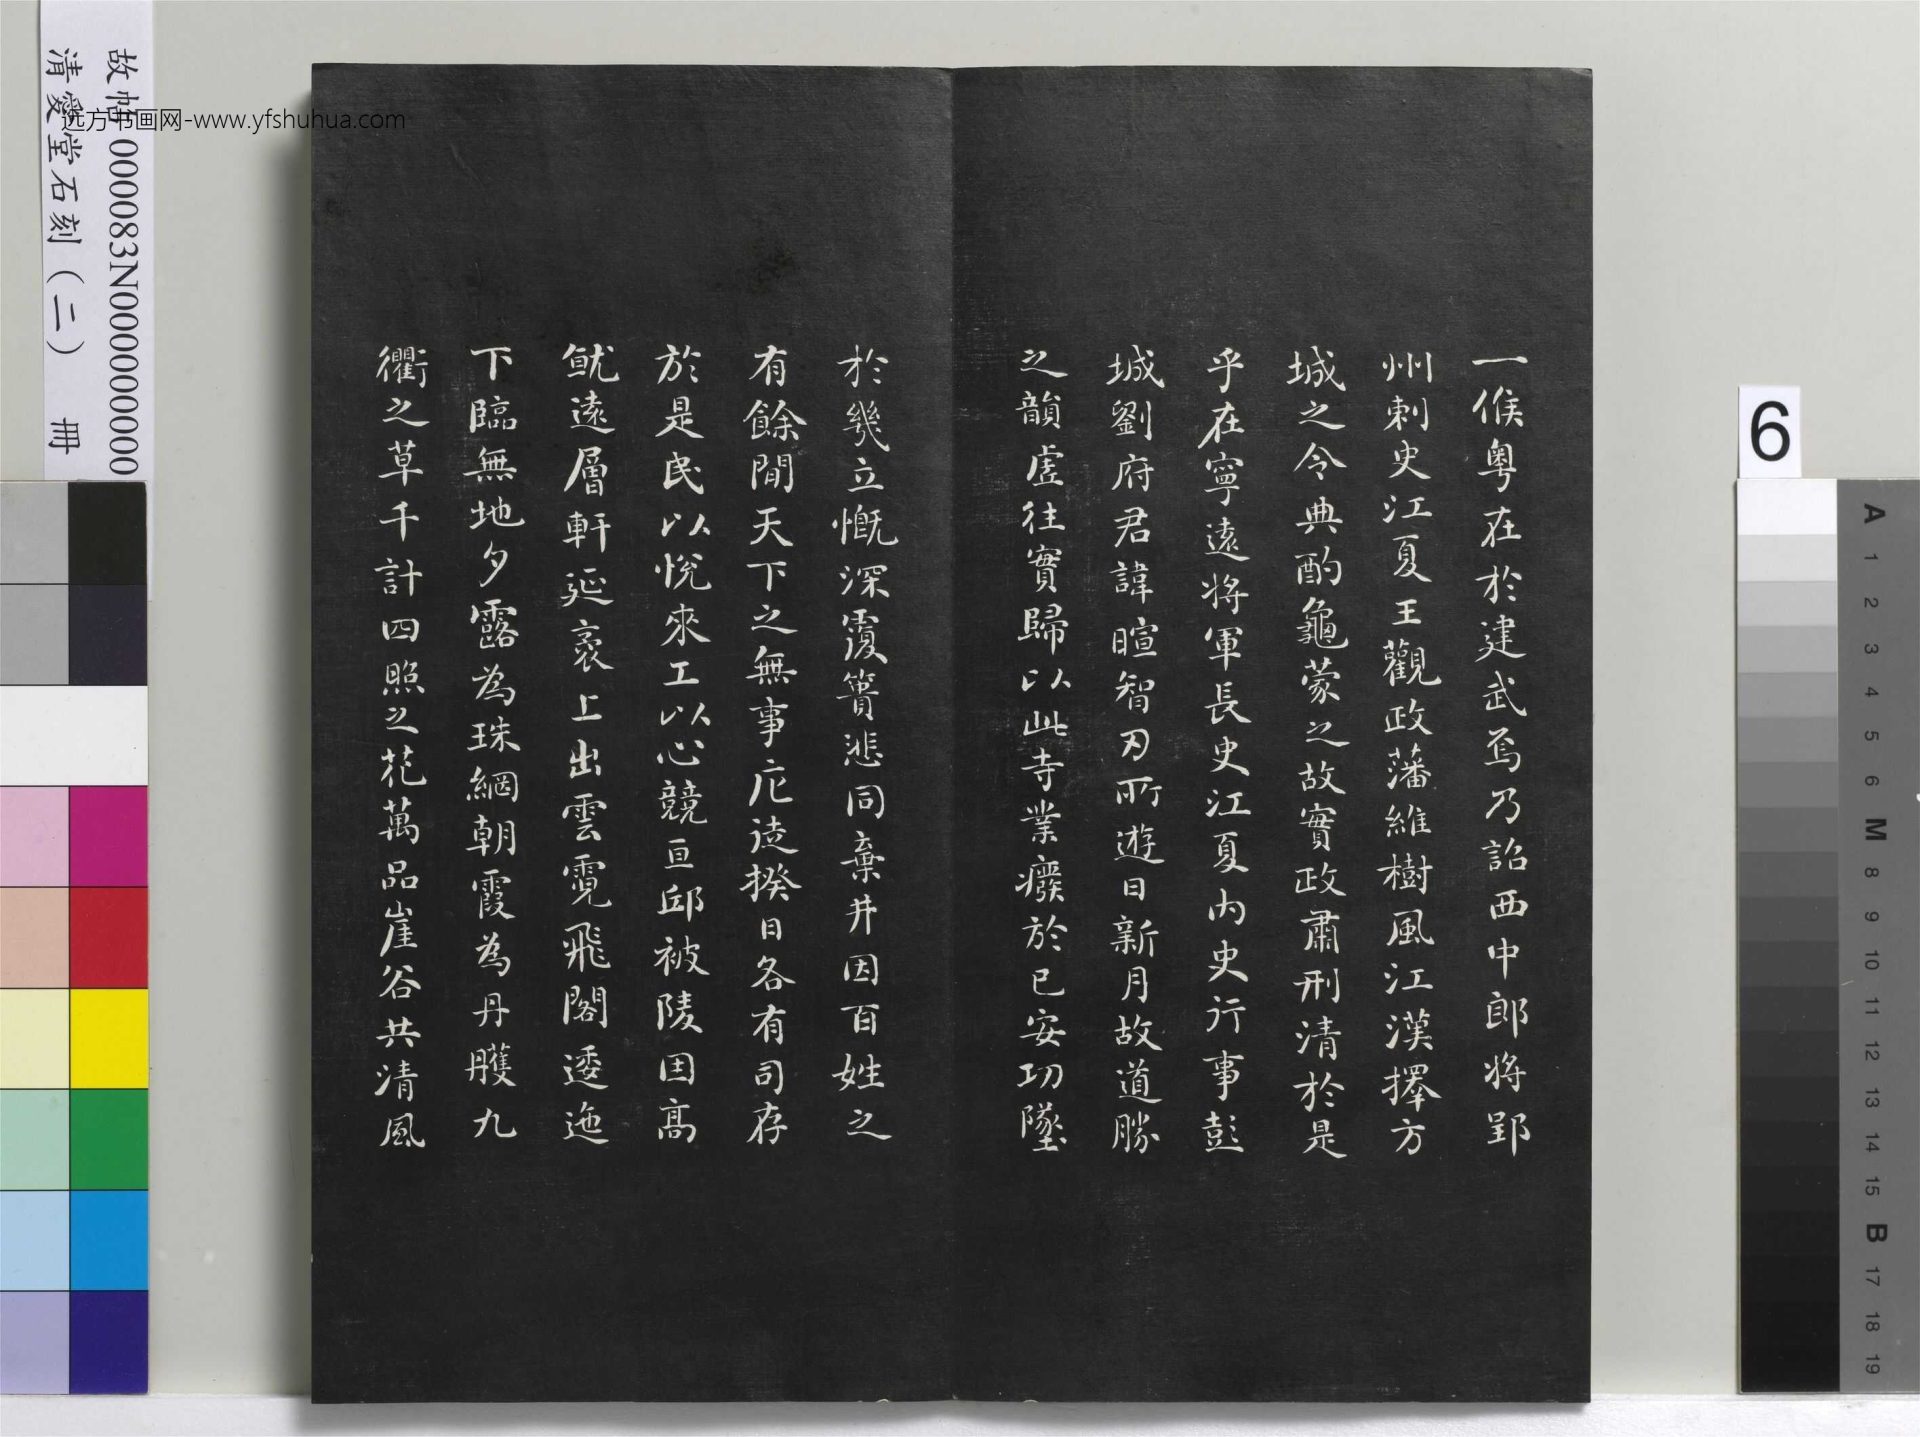 一候粵在於建武焉乃詔西中郎將郢
州刺史江夏王觀政藩維樹風江漢擇方
城之令典酌龜蒙之故實政肅刑清於是
乎在寧遠將軍長史江夏內史行事彭
城劉府君諱暄智刃所遊日新月故道勝
之韻虛往實歸以此寺業癈於已安功墜
於幾立慨深覆簣悲同棄井因百姓之
有餘間天下之無事庀徒揆日各有司存
於是民以悅來工以心競亘邱被陵因高
就遠層軒延袤上出雲霓飛閣逶迤
下臨無地夕露為珠網朝霞為丹雘九
衢之草千計四照之花萬品崖谷共清風
故帖000083N000000000
清愛堂石刻（二） 冊
远方书画网-www.yfshuhua.com
6
A
1
2
3
4
5
6
M
8
9
10
11
12
13
14
15
B
17
18
19